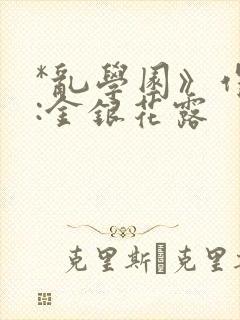 *亂學園》
:金銀花露
克里斯 克里